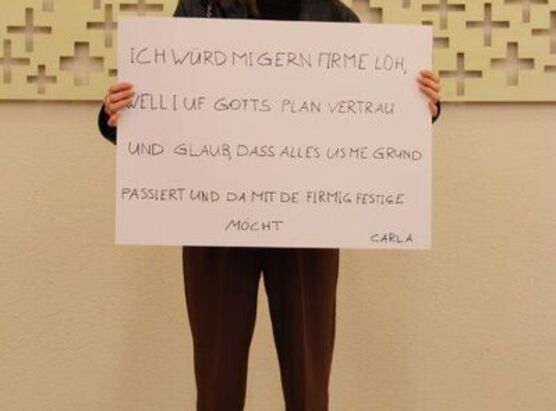 ICH WÜRD MI GERN FIRME LOH,
WELL I UF GOTTS PLAN VERTRAU
UND GLAUB, DASS ALLES US ME GRUND
PASSIERT UND DA MIT DE FIRMIG FESTIGE
MÖCHT
CARLA